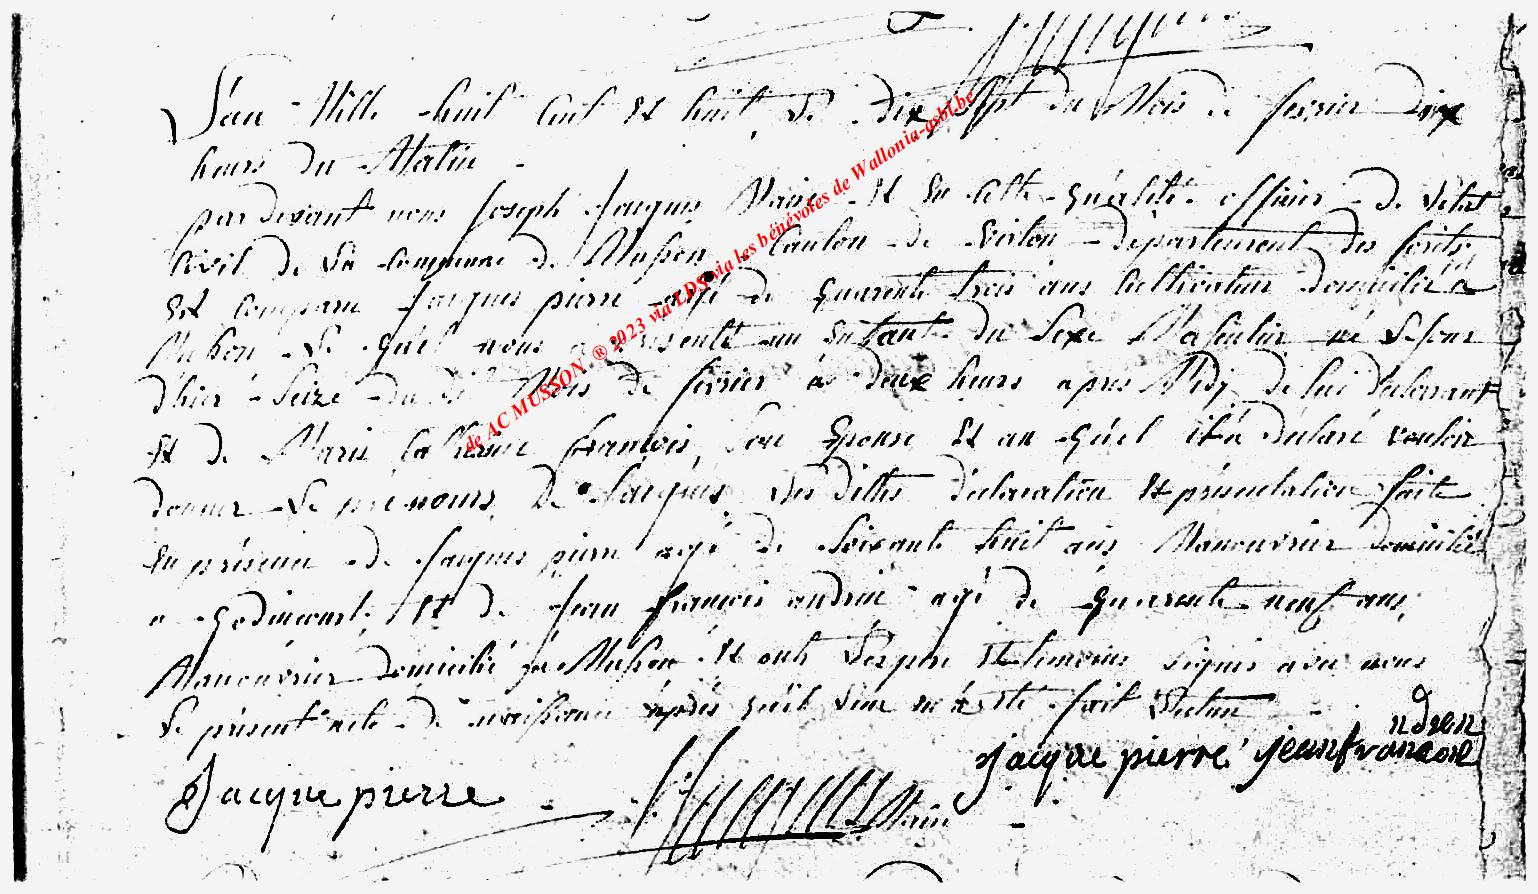 L'an Mille huit Cent Et huit, Le dix Sept du Mois de fevrier dix
heurs du Matin
par devant nous Joseph Jacques Maire Et En Cette quéalité officier de L'etat
Civil de La Commune de Musson, Canton de Virton département des forêts
Est comparu Jacques pierre agé de quarente trois ans Cultivateur domicilié a
Musson Le quel nous a presenté un Enfant du Sexe Masculin né Le Jour
d'hier Seize du dit Mois de fevrier à deux heurs apres Midj de lui declarant
Et de Marie Catherine françois, Son Epouse Et au quel il a declaré vouloir
donner Le prénoms De Jacques, Les dittes déclaration Et présentation faite
En présence de Jacques pierre agé de Soixante huit ans Manouvrier domicilié
a Godincourt Et de Jean françois andrin agé de quarente neuf ans,
Manouvrier domicilié a Musson Et ont Les pere Et temoins Signés avec nous
Le présent acte de naissance après quil Leur En à eté fait Lecture
Jacque pierre
Jacque pierre
Jean francoie
ndren
Maire
de AC MUSSON ® 2023 via LDS via les bénévoles de Wallonia-asbl.be